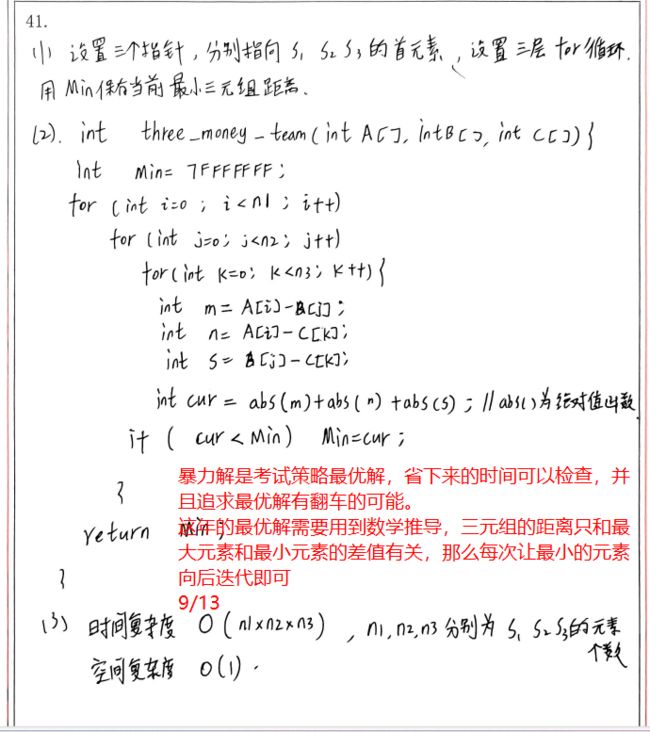 41.
(1) 设置三个指针，分别指向 S1 S2 S3 的首元素，设置三层 for循环.
用 Min保存当前最小三元组距离.
(2). int three_money_team(int A[], int B[], int C[]){
int Min= 7FFFFFFF;
for (int i=0 ; i<n1 ; i++)
for (int j=0; j<n2; j++)
for(int k=0; k<n3; k++){
int m= A[i]-B[j];
int n= A[i]-C[k];
int s= B[j]-C[k];
int cur = abs(m)+abs(n)+abs(s); //abs()为绝对值函数
if ( cur<Min) Min=cur;
}
暴力解是考试策略最优解，省下来的时间可以检查，并
且追求最优解有翻车的可能。
return Min;
这年的最优解需要用到数学推导，三元组的距离只和最
大元素和最小元素的差值有关，那么每次让最小的元素
向后迭代即可
}
9/13
(3) 时间复杂度 O(n1×n2×n3) , n1,n2,n3 分别为 S1 S2 S3的元素
个数
空间复杂度 O(1).